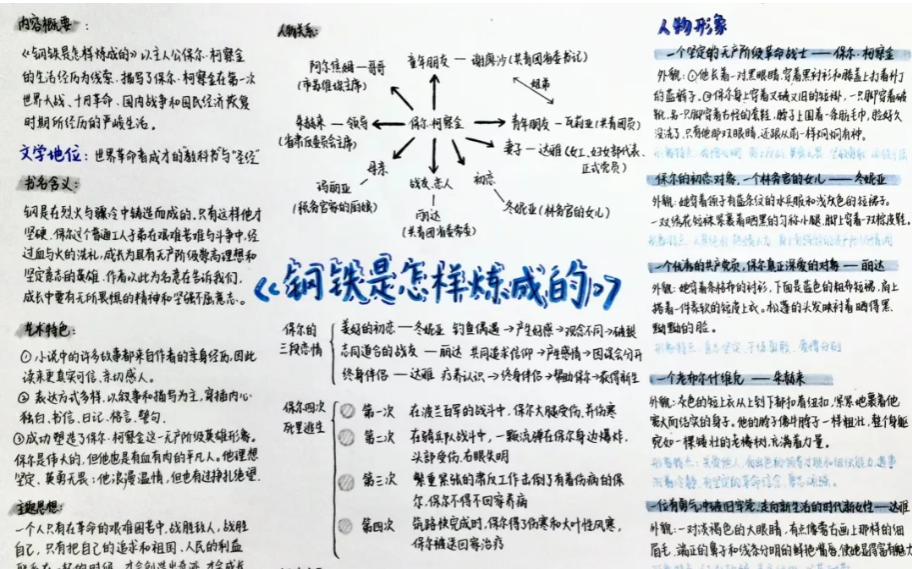 内容概要：
《钢铁是怎样炼成的》以主人公保尔·柯察金
的生活经历为线索，描写了保尔·柯察金在第一次
世界大战、十月革命、国内战争和国民经济恢复
时期所经历的严峻生活。
文学地位：世界革命者成才的"教科书"与"圣经"
书名含义：
钢是在烈火与骤冷中铸造而成的，只有这样他才
坚硬。保尔这个普通工人子弟在艰难苦难与斗争中，经
过血与火的洗礼，成长为具有无产阶级崇高理想和
坚定意志的英雄。作者以此为名意在告诉我们，
成长中要有无所畏惧的精神和坚强不屈意志。
艺术特色：
①小说中的许多故事都来自作者的亲身经历，因此
读来更真实可信、亲切感人。
②表达方式多样，以叙事和描写为主，穿插内心
独白、书信、日记、格言、警句。
③成功塑造了保尔·柯察金这一无产阶级英雄形象。
保尔是伟大的，但他也是有血有肉的平凡人。他理想
坚定、英勇无畏；他浪漫温情，但也有过挣扎绝望。
主题思想：
一个人只有在革命的艰难困苦中，战胜敌人，战胜
自己，只有把自己的追求和祖国、人民的利益
人物关系：
阿尔焦姆—哥哥
（市苏维埃主席）
童年朋友—谢廖沙（共青团省委书记）
姐弟
朱赫来—领导
（省肃反委员会主席）
保尔·柯察金
青年朋友—瓦莉亚（共青团员）
妻子—达雅（女工、妇女部代表、
正式党员）
母亲
玛丽亚
（税务官家的厨娘）
战友、恋人
丽达
（共青团省委常委）
初恋
冬妮亚（林务官的女儿）
《钢铁是怎样炼成的》
保尔的
三段恋情
美好的初恋—冬妮亚 钓鱼偶遇→产生好感→观念不同→破裂
志同道合的战友—丽达 共同追求信仰→产生感情→因误会分开
终身伴侣—达雅 疗养认识→终身伴侣→帮助保尔→获得新生
保尔四次
死里逃生
第一次 在波兰白军的战斗中，保尔大腿受伤，并伤寒
第二次 在骑兵队战斗中，一颗流弹在保尔身边爆炸，
头部受伤，右眼失明
第三次 繁重紧张的肃反工作击倒了有着伤病的保
尔，保尔不得不回家养病
第四次 筑路快完成时，保尔得了伤寒和大叶性风寒，
保尔被送回家治疗
人物形象
一个坚定的无产阶级革命战士——保尔·柯察金
外貌：①他长着一对黑眼睛，穿着黑衬衫和膝盖上打着补丁
的蓝裤子。②保尔身上穿着又破又旧的短褂，一只脚穿着破
靴，另一只脚穿着古怪的套鞋，脖子上围着一条脏毛巾，脸好久
没洗了，只有他那双眼睛，还跟从前一样炯炯有神。
保尔的初恋对象，一个林务官的女儿——冬妮亚
外貌：她穿着领子有蓝条纹的水兵服和浅灰色的短裙子。
一个优秀的共产党员，保尔真正深爱的对象——丽达
外貌：她穿着条格布的衬衫，下面是蓝色的粗布短裙，肩上
搭着一件柔软的短皮上衣。松蓬的头发映衬着晒得黑
黝黝的脸。
一个老布尔什维克——朱赫来
外貌：灰色的短上衣从上到下都扣着纽扣，紧紧地裹着他
宽大而结实的身子。他的脖子像牛脖子一样粗壮，整个身躯
宛如一棵矮壮的老橡树，充满着力量。
外貌：一对深褐色的大眼睛，有点像着古画上那样的细
眉毛，端正的鼻子和线条分明的鲜艳嘴唇，